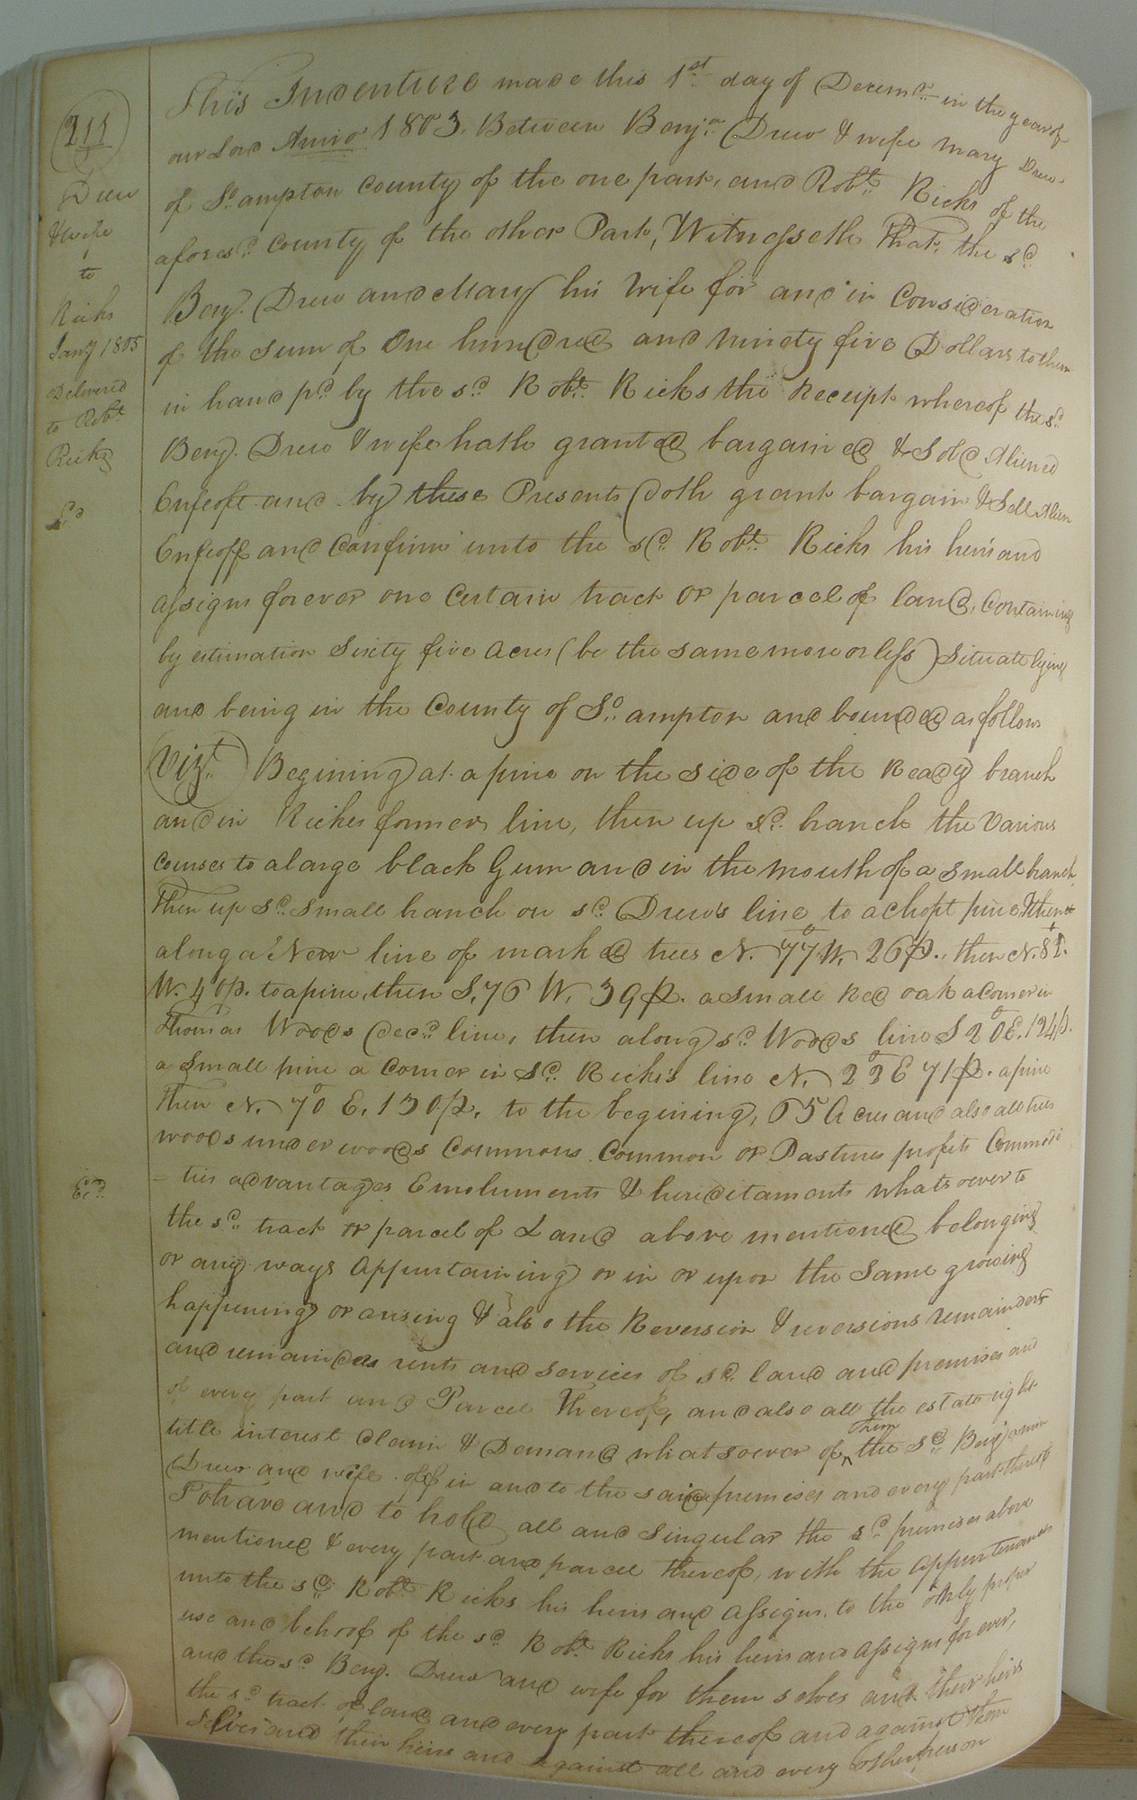 211
Drew
& wife
to
Ricks
Jany 1805
Delivered
to Robt
Ricks
Ed
Exd
This Indenture made this 1st day of Decemr in the year of
our Lord Anno 1803. Between Benjn Drew & wife Mary Drew
of So.ampton County of the one part, and Robt. Ricks of the
aforesd. County of the other Part, Witnesseth That, the sd.
Benj. Drew and Mary his Wife for and in Consideration
of the sum of One hundred and ninety five Dollars to them
in hand pd by the sd. Robt. Ricks the Receipt whereof the sd
Benj. Drew & wife hath granted bargained & Sold Aliened
Enfeoft and by these Presents doth grant bargain & Sell Alien
Enfeoff and Confirm unto the sd. Robt. Ricks his heirs and
assigns forever one Certain tract or parcel of land, Containing
by estimation Sixty five acres (be the same more or less) Situate lying
and being in the County of So.ampton and bounded as follows
(Vizt.) Begining at a pine on the side of the Ready branch
and in Rickes former line, then up sd. branch the Various
Courses to a large black Gum and in the mouth of a small branch,
Then up sd. small branch on sd. Drew's line to a chopt pine, thence
along a New line of marked trees N. 77° W. 26 p., then N. 81.
W. 40 p. to a pine, then S. 76 W. 39 p. a small Red oak a Corner in
Thomas Woods decd. line, then along sd. Woods line S 20° E. 124 p.
a small pine a Corner in sd. Ricks's line N. 22° E 71 p. a pine
Then N. 70° E. 130 p. to the begining, 65 Acres and also all trees
woods under woods Commons Common or Pastures profits Commodi
- ties advantages Emoluments & hereditaments whatsoever to
the sd. tract or parcel of Land above mentioned belonging
or any ways Appurtaining or in or upon the Same growing
happening or arising & also the Reversion & reversions remainder
and remainders rents and services of sd. land and premises and
of every part and Parcel Thereof, and also all the estate right
title interest claim & Demand whatsoever of ^Them the sd. Benjamin
Drew and wife off in and to the said premises and every part thereof
To have and to hold all and singular the sd. premises above
mentioned & every part and parcel thereof, with the appurtenances
unto the sd. Robt. Ricks his heirs and assigns. to the only proper
use and behoof of the sd. Robt. Ricks his heirs and assigns for ever,
and the sd. Benj. Drew and wife for them selves and their heirs
the sd. tract of land and every part thereof and against them
selves and their heirs and against all and every other person